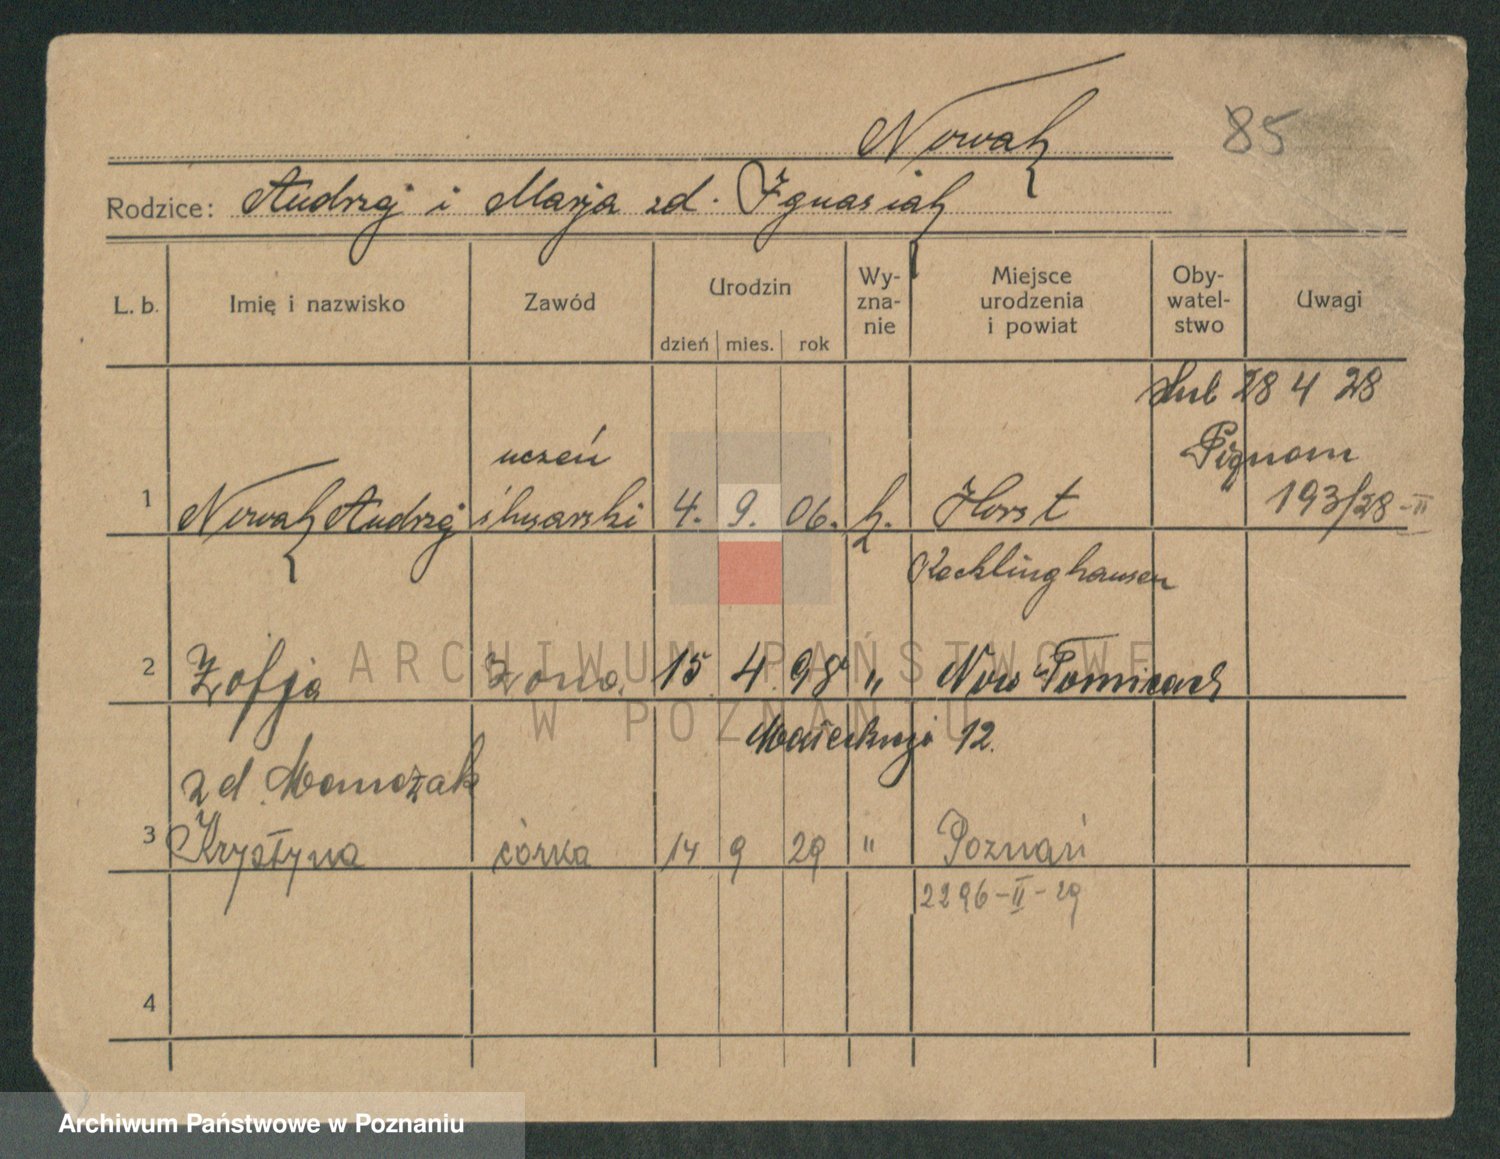 Nowak
85
Rodzice: Andrzej i Marja zd. Ignasiak
L. b. Imię i nazwisko Zawód Urodzin dzień mies. rok Wy-zna-nie Miejsce urodzenia i powiat Oby-watel-stwo Uwagi
ślub 28 4 28
uczeń
193/28-II
1 Nowak Andrzej ślusarski 4. 9. 06. k. Horst
Recklinghausen
2 Zofja żona 15 4 98 "
12.
zd.
3 Krystyna córka 14 9 29 " Poznań
2296-II-29
4
ARCHIWUM PAŃSTWOWE
W POZNANIU
Archiwum Państwowe w Poznaniu